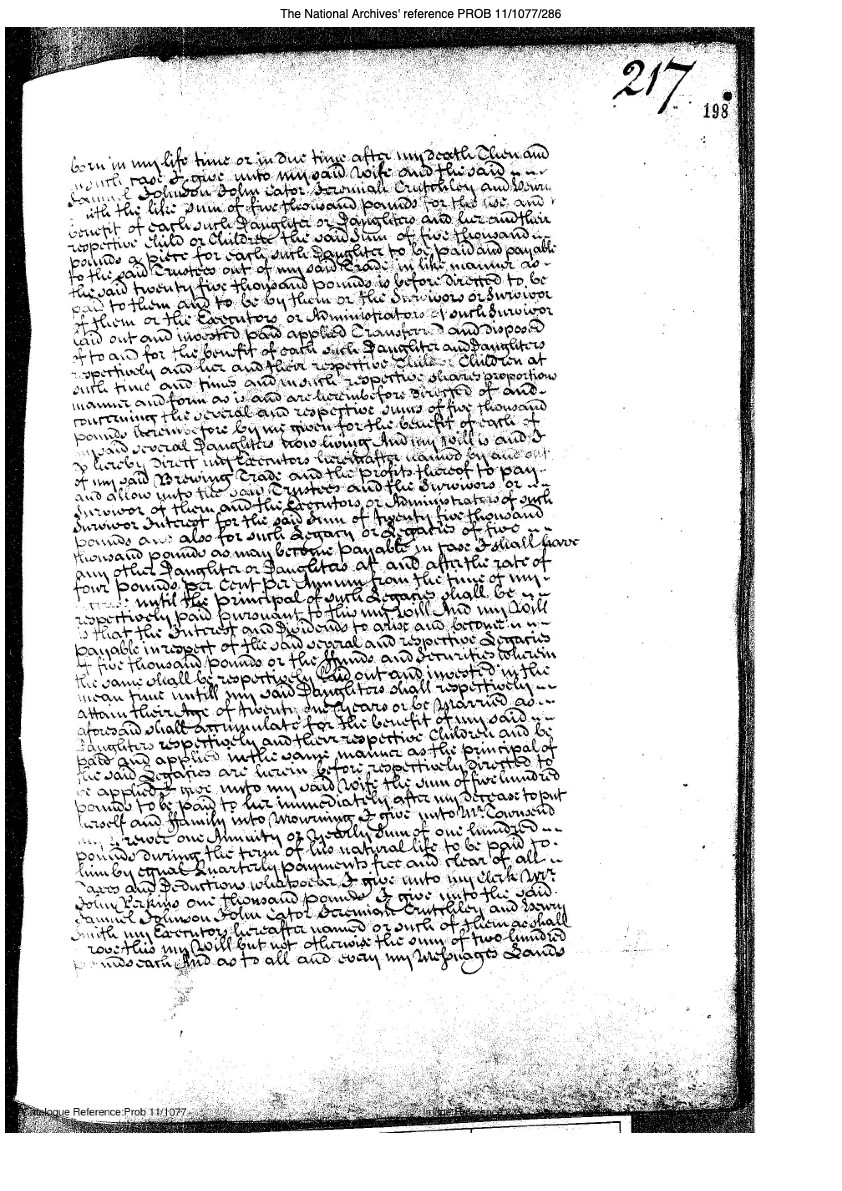 The National Archives' reference PROB 11/1077/286
217
198
born in my life time or in due time after my death Then and
in such case I give unto my said Wife and the said
Samuel Johnson John Cator Jeremiah Crutchley and Henry
Smith the like Sum of five thousand pounds for the use and
benefit of each such Daughter or Daughters and her and their
respective Child or Children the said Sum of five thousand
pounds a piece for each such Daughter to be paid and payable
to the said Trustees out of my said Trade in like manner as
the said twenty five thousand pounds is before directed to be
paid to them and to be by them or the Survivors or Survivor
of them or the Executors or Administrators of such Survivor
laid out and invested paid applied Transferred and disposed
of to and for the benefit of each such Daughter and Daughters
respectively and her and their respective Child or Children at
such time and times and in such respective shares proportions
manner and form as is and are hereinbefore directed of and
concerning the several and respective sums of five thousand
pounds hereinbefore by me given for the benefit of each of
my said several Daughters now living And my Will is and I
do hereby Direct my Executors hereinafter named by and out
of my said Brewing Trade and the profits thereof to pay
and allow unto the said Trustees and the Survivors or
Survivor of them and the Executors or Administrators of such
Survivor Interest for the said Sum of Twenty five thousand
pounds and also for such Legacy or Legacies of five
thousand pounds as may become payable in case I shall have
any other Daughter or Daughters at and after the rate of
four pounds per Cent per Annum from the time of my
until the principal of such Legacies shall be
respectively paid pursuant to this my Will And my Will
is that the Interest and Dividends to arise and become
payable in respect of the said several and respective Legacies
of five thousand pounds or the ffunds and Securities wherein
the same shall be respectively laid out and invested in the
mean time untill my said Daughters shall respectively
attain their Age of twenty one Years or be Married as
aforesaid shall accumulate for the benefit of my said
Daughters respectively and their respective Children and be
paid and applied in the same manner as the principal of
the said Legacies are herein before respectively directed to
be applied I give unto my said Wife the sum of five hundred
pounds to be paid to her immediately after my decease to put
herself and ffamily into Mourning I give unto Mr. Townsend
my Brewer one Annuity or Yearly Sum of one hundred
pounds during the term of his natural life to be paid to
him by equal Quarterly payments free and clear of all
Taxes and Deductions whatsoever I give unto my Clerk Mr.
John Perkins one thousand pounds I give unto the said
Samuel Johnson John Cator Jeremiah Crutchley and Henry
Smith my Executors hereafter named or such of them as shall
prove this my Will but not otherwise the sum of two hundred
pounds each And as to all and every my Messuages Lands
Catalogue Reference:Prob 11/1077